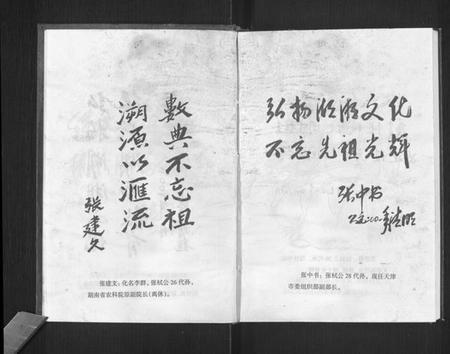 數典不忘祖
溯源以滙流
張建文
张建文：化名李群，张栻公26代孙，
湖南省农科院原副院长（离休）。
弘扬湖湘文化
不忘先祖光辉
张中书
张中书：张栻公28代孙，现任天津
市委组织部副部长。